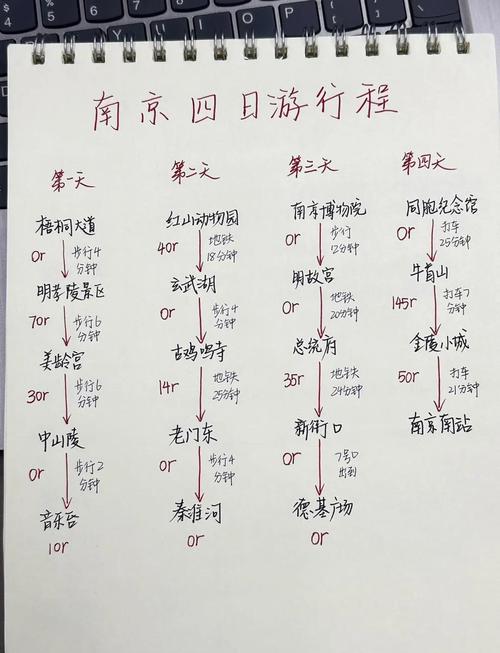 南京四日游行程
第一天
梧桐大道
0r
步行4
分钟
明孝陵景区
70r
步行6
分钟
美龄宫
30r
步行6
分钟
中山陵
0r
步行2
分钟
音乐台
10r
第二天
红山动物园
40r
地铁
18分钟
玄武湖
0r
步行4
分钟
古鸡鸣寺
14r
地铁
25分钟
老门东
0r
步行4
分钟
秦淮河
0r
第三天
南京博物院
0r
步行
12分钟
明故宫
0r
地铁
20分钟
总统府
35r
地铁
24分钟
新街口
0r
7号口
出到
德基广场
0r
第四天
同胞纪念馆
0r
打车
25分钟
牛首山
145r
打车7
分钟
金陵小城
50r
打车
21分钟
南京南站